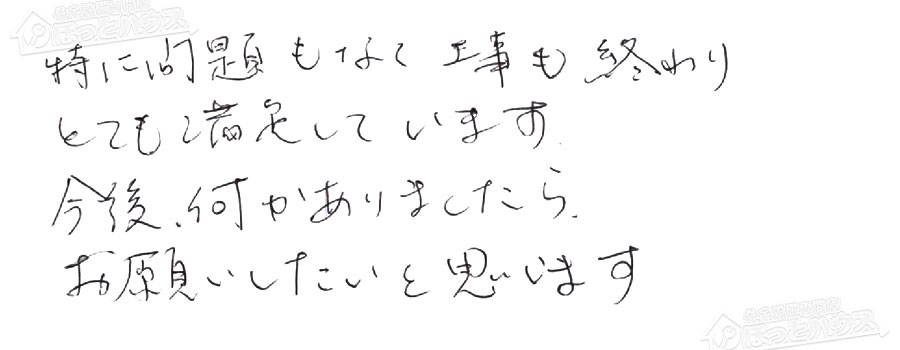 ほっとハウス
特に問題もなく工事も終わり
とても満足しています.
今後、何かありましたら、
お願いしたいと思います
ほっとハウス